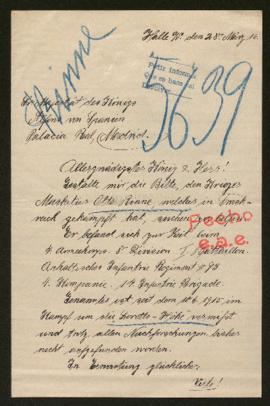 Halle /S. den 28. März 16.
Rinne
Petit informe
Que se haga al
5639
Sr. Majestät des Königs
von Spanien
Palacio Real, Madrid.
Allergnädigster König & Herr!
Gestatte mir die Bitte, den
Musketier Otto Rinne, welcher in Frank-
reich gekämpft hat,
Er befand sich zur Zeit beim
4. Armeekorps. 8. Division I. Bataillon
Infantrie Regiment # 93
4. Kompanie. 14 Infantrie Brigade.
Genannter ist seit dem 10.6.1915 im
Kampf um die Loretto-Höhe vermisst
und trotz allen Nachforschungen bisher
nicht aufgefunden worden.
In Erwartung glücklicher
Pecho
e.a.e.